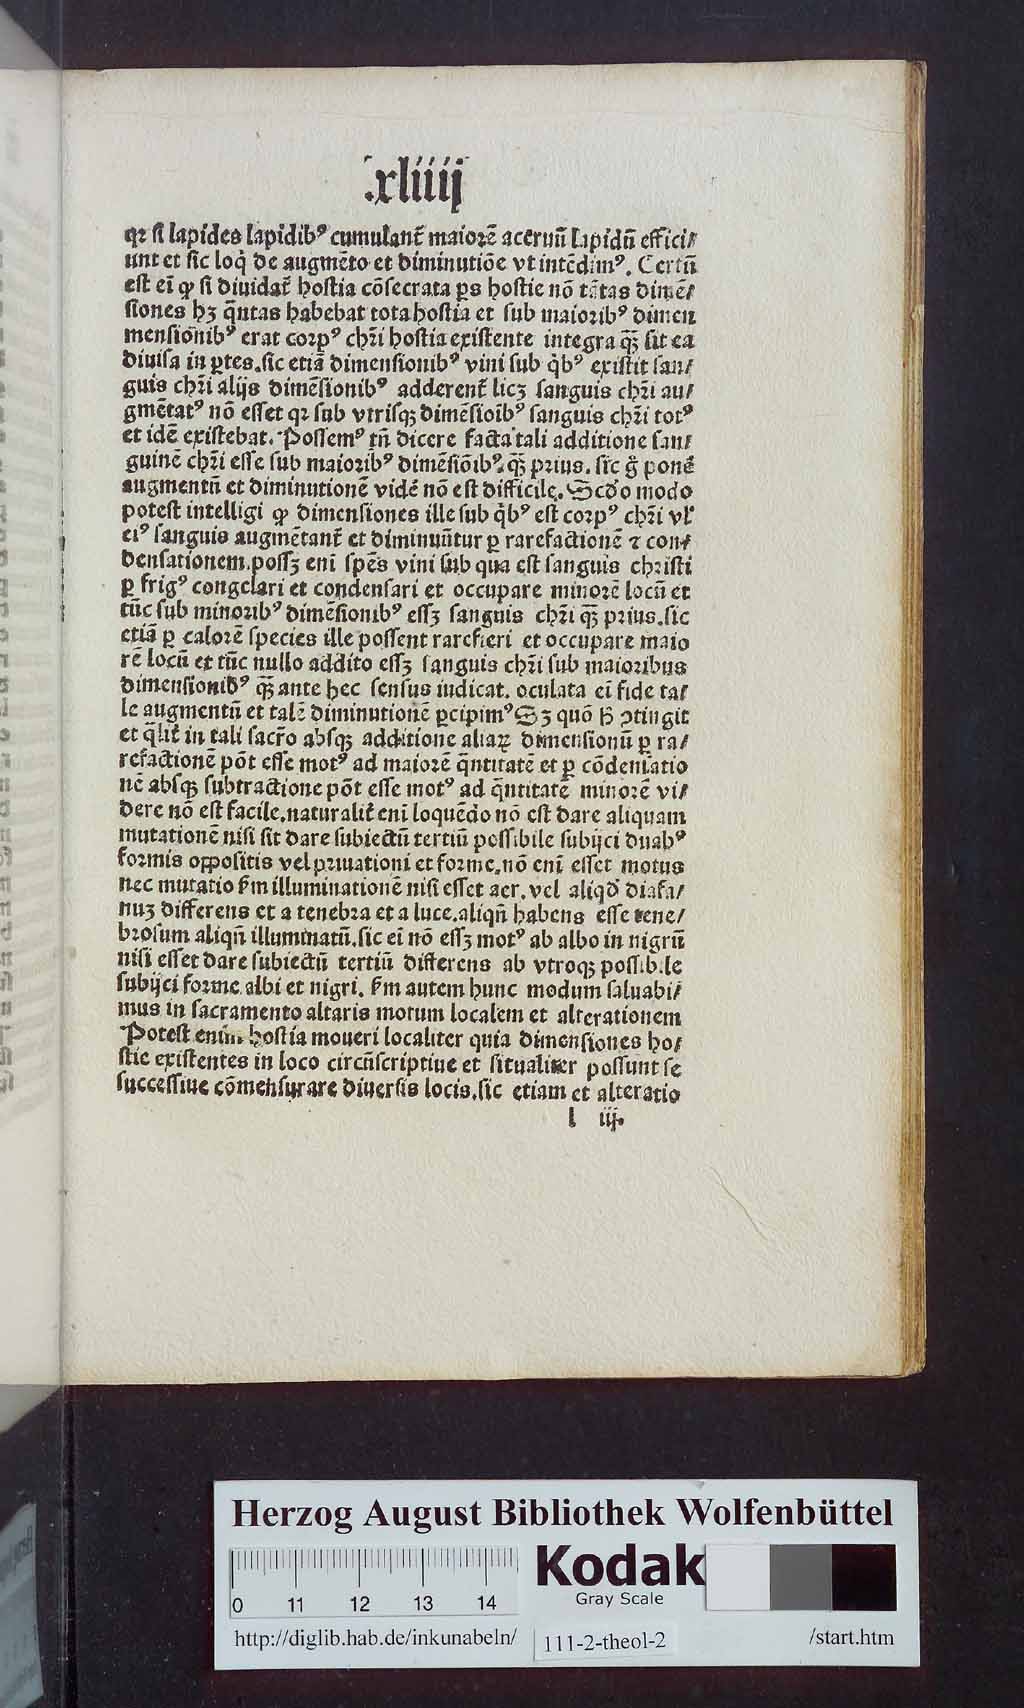 .xliiij
qꝛ si lapides lapidibꝰ cumulant̄ maiorē aceruū lapidū effici⸗
unt et sic loq̇ de augmēto et diminutiōe vt intēdimꝰ. Certū
est eī ꝙ si diuidat̄ hostia cōsecrata ps hostie nō tātas dimē⸗
siones hꝫ q̄ntas habebat tota hostia et sub maioribꝰ dimen
mensiōnibꝰ erat corpꝰ chr̄i hostia existente integra qꝫ̄ sit ea
diuisa in ꝑtes. sic etiā dimensionibꝰ vini sub q̇bꝰ existit san⸗
guis chr̄i alijs dimēsionibꝰ adderent̄ licꝫ sanguis chr̄i au⸗
gmētatꝰ nō esset qꝛ sub vtrisqꝫ dimēsioībꝰ sanguis chr̄i totꝰ
et idē existebat. Possemꝰ tn̄ dicere facta tali additione san⸗
guinē chr̄i esse sub maioribꝰ dimēsiōibꝰ qꝫ̄ prius. sic g̊ ponē
augmentū et diminutionē vidē nō est difficile. Scd̄o modo
potest intelligi ꝙ dimensiones ille sub q̇bꝰ est corpꝰ chr̄i vl̓
eiꝰ sanguis augmētant̄ et diminuūtur ꝑ rarefactionē ⁊ con⸗
densationem. possꝫ enī spēs vini sub qua est sanguis christi
ꝑ frigꝰ congelari et condensari et occupare minorē locū et
tūc sub minoribꝰ dimēsionibꝰ essꝫ sanguis chr̄i qꝫ̄ prius. sic
etiā ꝑ calorē species ille possent rarefieri et occupare maio
rē locū et tūc nullo addito essꝫ sanguis chr̄i sub maioribus
dimensionibꝰ qꝫ̄ ante hec sensus iudicat. oculata eī fide ta⸗
le augmentū et talē diminutionē ꝑcipimꝰ Sꝫ quō h̄ ↄtingit
et q̄lit̄ in tali sacr̄o absqꝫ additione aliaꝝ dimensionū ꝑ ra⸗
refactionē pōt esse motꝰ ad maiorē q̄ntitatē et ꝑ cōdensatio
nē absqꝫ subtractione pōt esse motꝰ ad q̄ntitatē minorē vi⸗
dere nō est facile. naturalit̄ enī loquēdo nō est dare aliquam
mutationē nisi sit dare subiectū tertiū possibile subijci duabꝰ
formis oppositis vel priuationi et forme. nō enī esset motus
nec mutatio ẜm illuminationē nisi esset aer. vel aliqd̓ diafa⸗
nuꝫ differens et a tenebra et a luce. aliqn̄ habens esse tene⸗
brosum aliqn̄ illuminatū. sic eī nō essꝫ motꝰ ab albo in nigrū
nisi esset dare subiectū tertiū differens ab vtroqꝫ possibile
subijci forme albi et nigri. ẜm autem hunc modum saluabi⸗
mus in sacramento altaris motum localem et alterationem
Potest enim hostia moueri localiter quia dimensiones ho⸗
stie existentes in loco circūscriptiue et situaliter possunt se
successiue cōmensurare diuersis locis. sic etiam et alteratio
l iij.
Herzog August Bibliothek Wolfenbüttel
Kodak
Gray Scale
0 11 12 13 14
http://diglib.hab.de/inkunabeln/ 111-2-theol-2 /start.htm